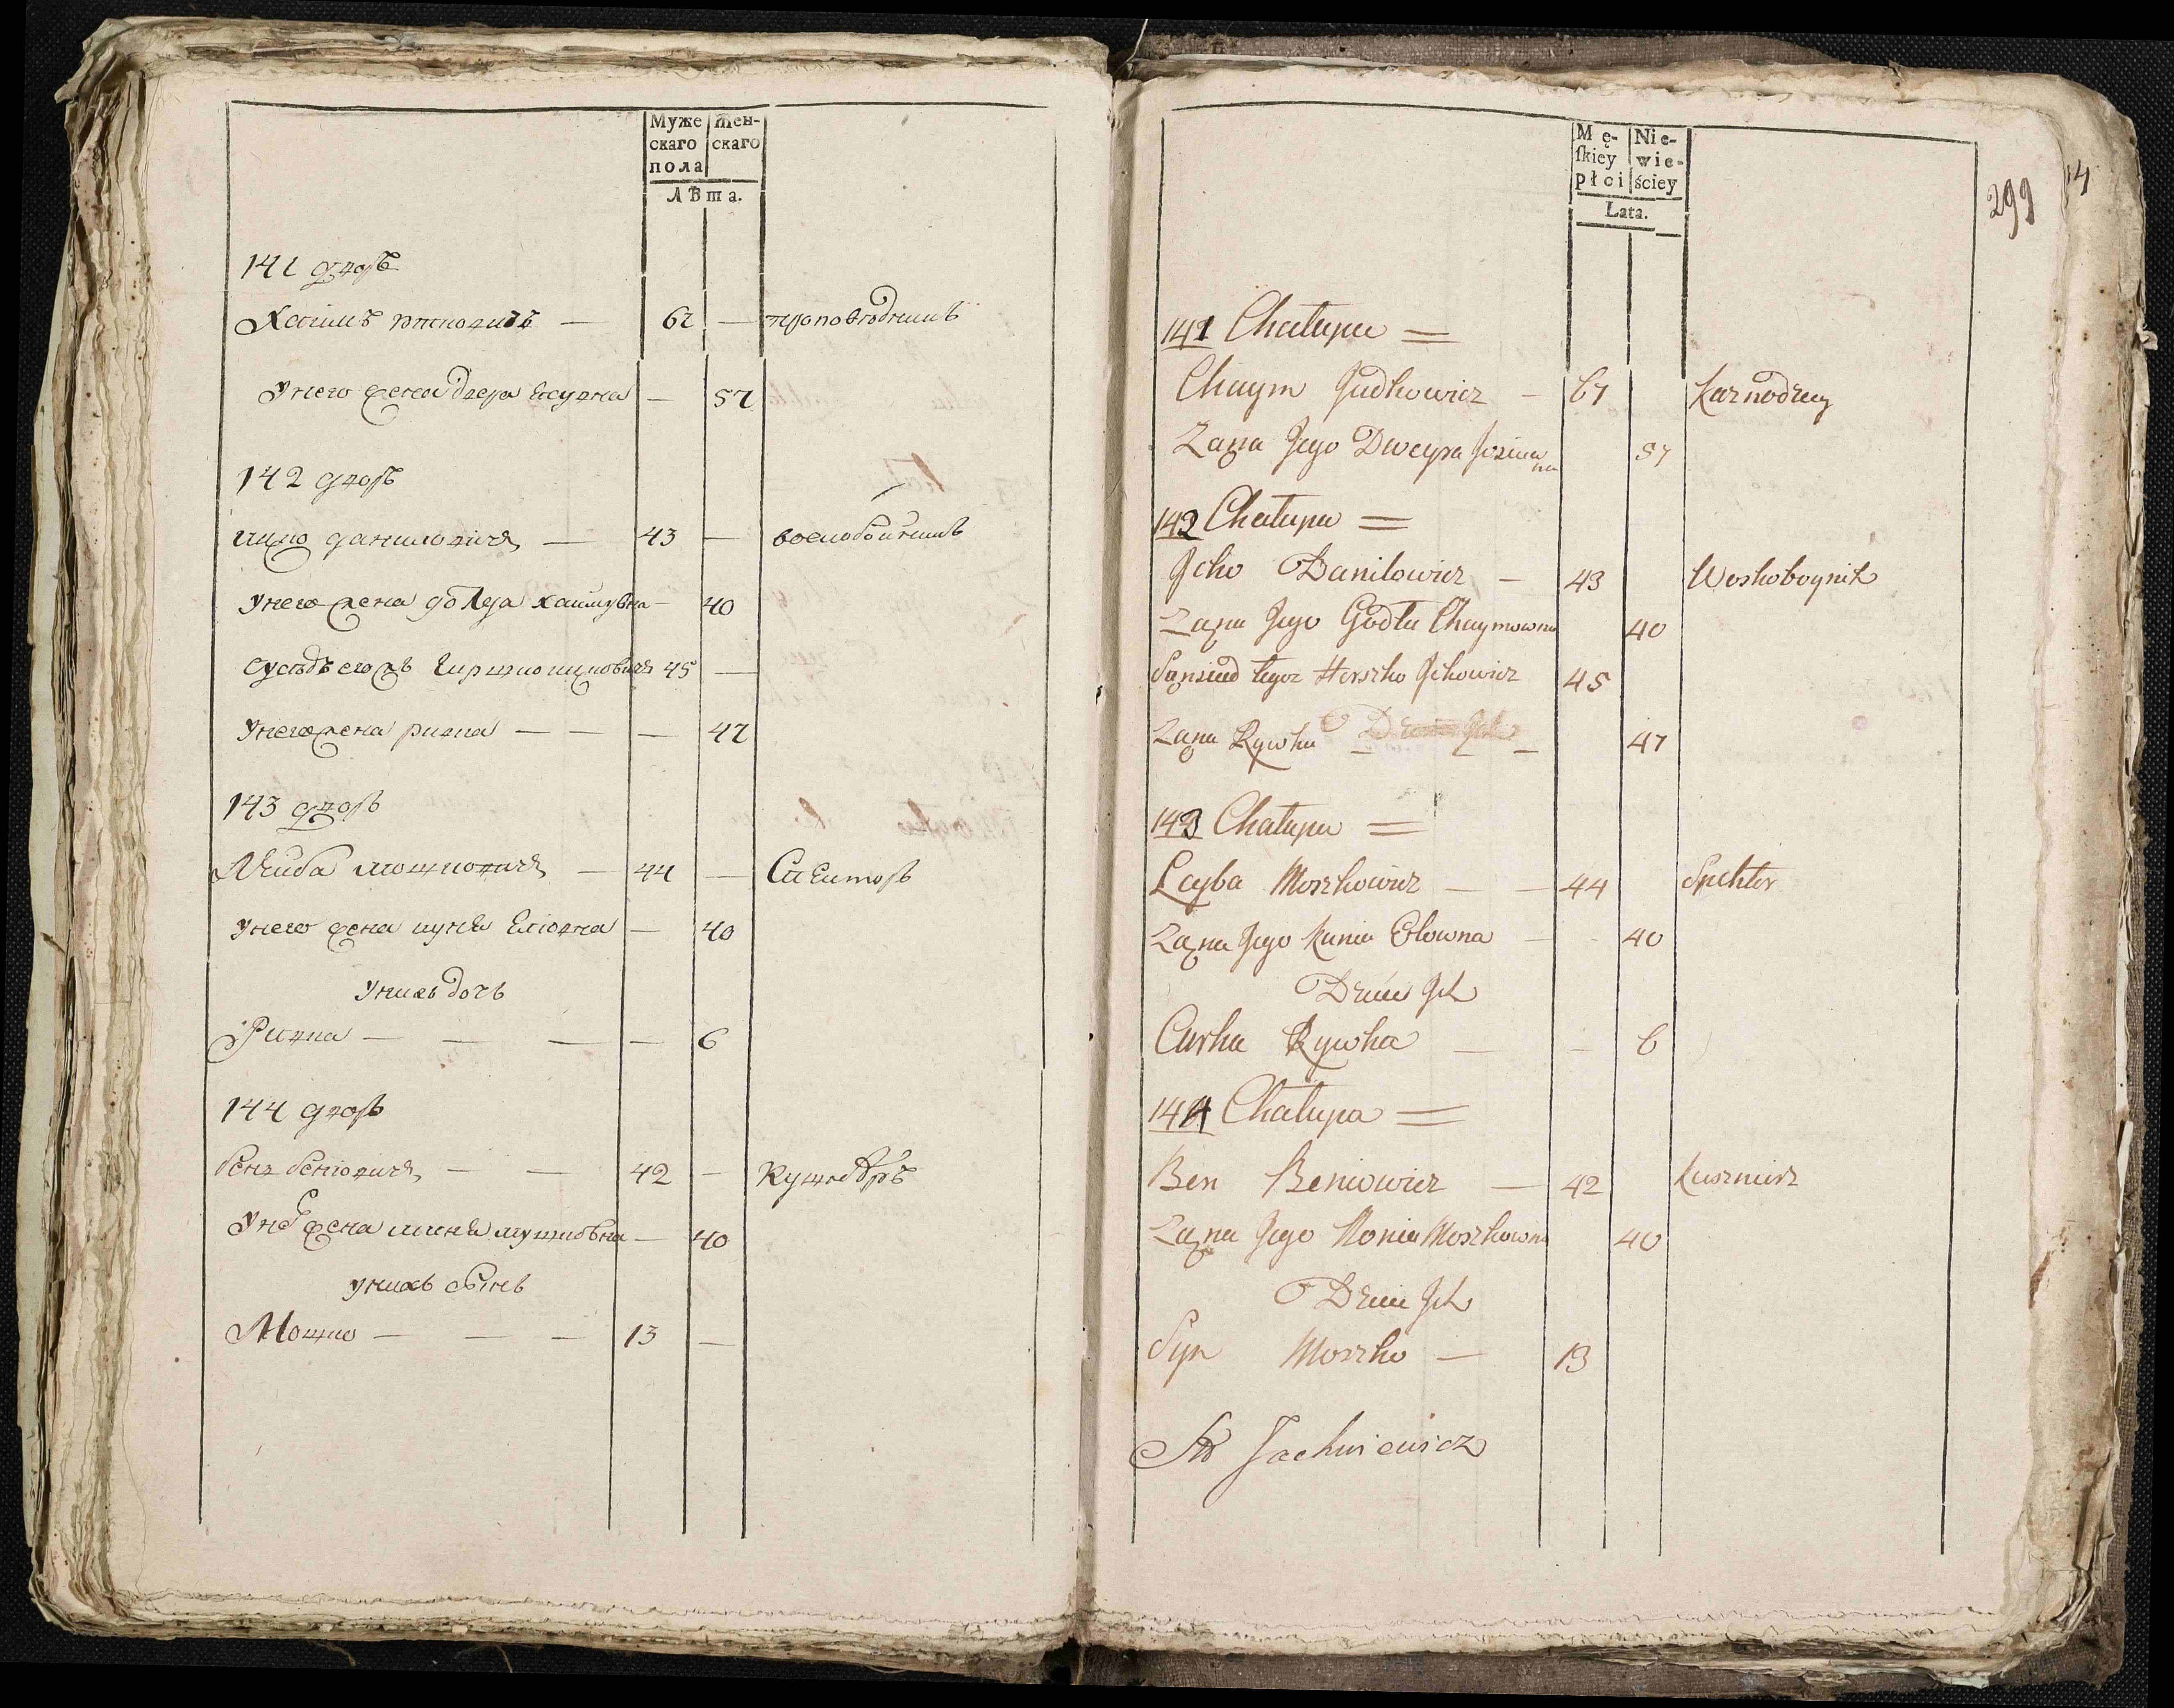 Муже
скаго
пола
Жен-
скаго
Лѣта.
141 дворъ
Хаимъ — 67 — проповѣдникъ
У него жена двера — 57
142 дворъ
ицко даниловичъ — 43 — воскобойникъ
У него жена годля хаимувна — 40
Сусѣдъ егожъ гиршко ицковичъ 45 —
У него жена ривка — — — 47
143 дворъ
Лейба мошковичъ — 44 — Спекторъ
У него жена куня еліовна — 40
У нихъ дочь
Ривка — — — — 6
144 дворъ
бенъ беніовичъ — — 42 — Кушнѣръ
У нѣг жена моня мушковна — 40
У нихъ сынъ
Мошко — — — 13 —
Mę-
ſkiey
płci
Nie-
wie-
ściey
Lata.
299
14
141 Chałupa =
Chaym Judkowicz — 67 Kaznodzey
Żona Jego Dweyra 57
142 Chałupa =
Icko Daniłowicz — 43 Woskoboynik
Żona Jego Godla Chaymowna 40
Sąsied tegoż Herszko Ickowicz 45
Żona Rywka — — 47
143 Chałupa =
Leyba Moszkowicz — — 44 Spektor
Żona Jego Kunia Elowna — - 40
Dzieci Ich
Curka Rywka — - 6
144 Chałupa =
Ben Beniowicz — 42 Kusznierz
Żona Jego Monia Moszkowna 40
Dzieci Ich
Syn Moszko — 13
Jachniewicz